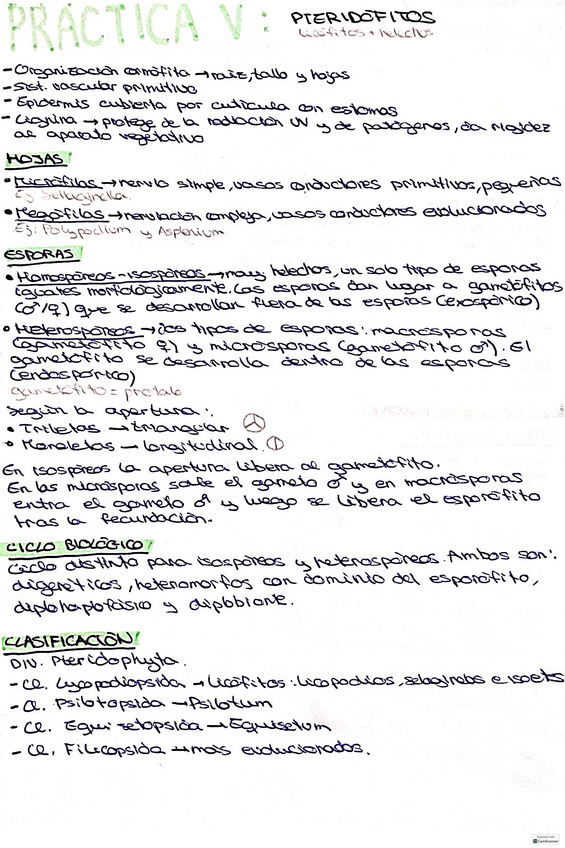 PRÁCTICA V: PTERIDÓFITOS
licófitos + helechos
- Organización cormófita → raíz, tallo y hojas
- Sist. vascular primitivo
- Epidermis cubierta por cutícula con estomas
- Lignina → protege de la radiación UV y de patógenos, da rigidez
al aparato vegetativo
HOJAS
• Micrófilas → nervio simple, vasos conductores primitivos, pequeñas
Ej: Sellaginella.
• Megáfilas → nerviación compleja, vasos conductores evolucionados
Ej: Polypodium y Asplenium
ESPORAS
• Homospóreos - isospóreos → muy helechos, un solo tipo de esporas
iguales morfológicamente. Las esporas dan lugar a gametófitos
(♂/♀) que se desarrollan fuera de las esporas (exospórico)
• Heterospóreos → dos tipos de esporas: macrosporas
(gametófito ♀) y microsporas (gametófito ♂). El
gametófito se desarrolla dentro de las esporas
(endospórico)
gametófito = protalo
Según la apertura:
• Triletas → triangular
• Monoletas → longitudinal.
En isospóreos la apertura libera al gametófito.
En las microsporas sale el gameto ♂ y en macrosporas
entra el gameto ♂ y luego se libera el esporófito
tras la fecundación.
CICLO BIOLÓGICO
Ciclo distinto para isospóreos y heterospóreos. Ambos son:
digenéticos, heteromorfos con dominio del esporófito,
diplohaplofásico y diplobionte.
CLASIFICACIÓN
DIV. Pteridophyta.
- Cl. Lycopodiopsida → Licófitos: licopodios, selaginelas e isoets
- Cl. Psilotopsida → Psilotum
- Cl. Equisetopsida → Equisetum
- Cl. Filicopsida → más evolucionados.
CamScanner